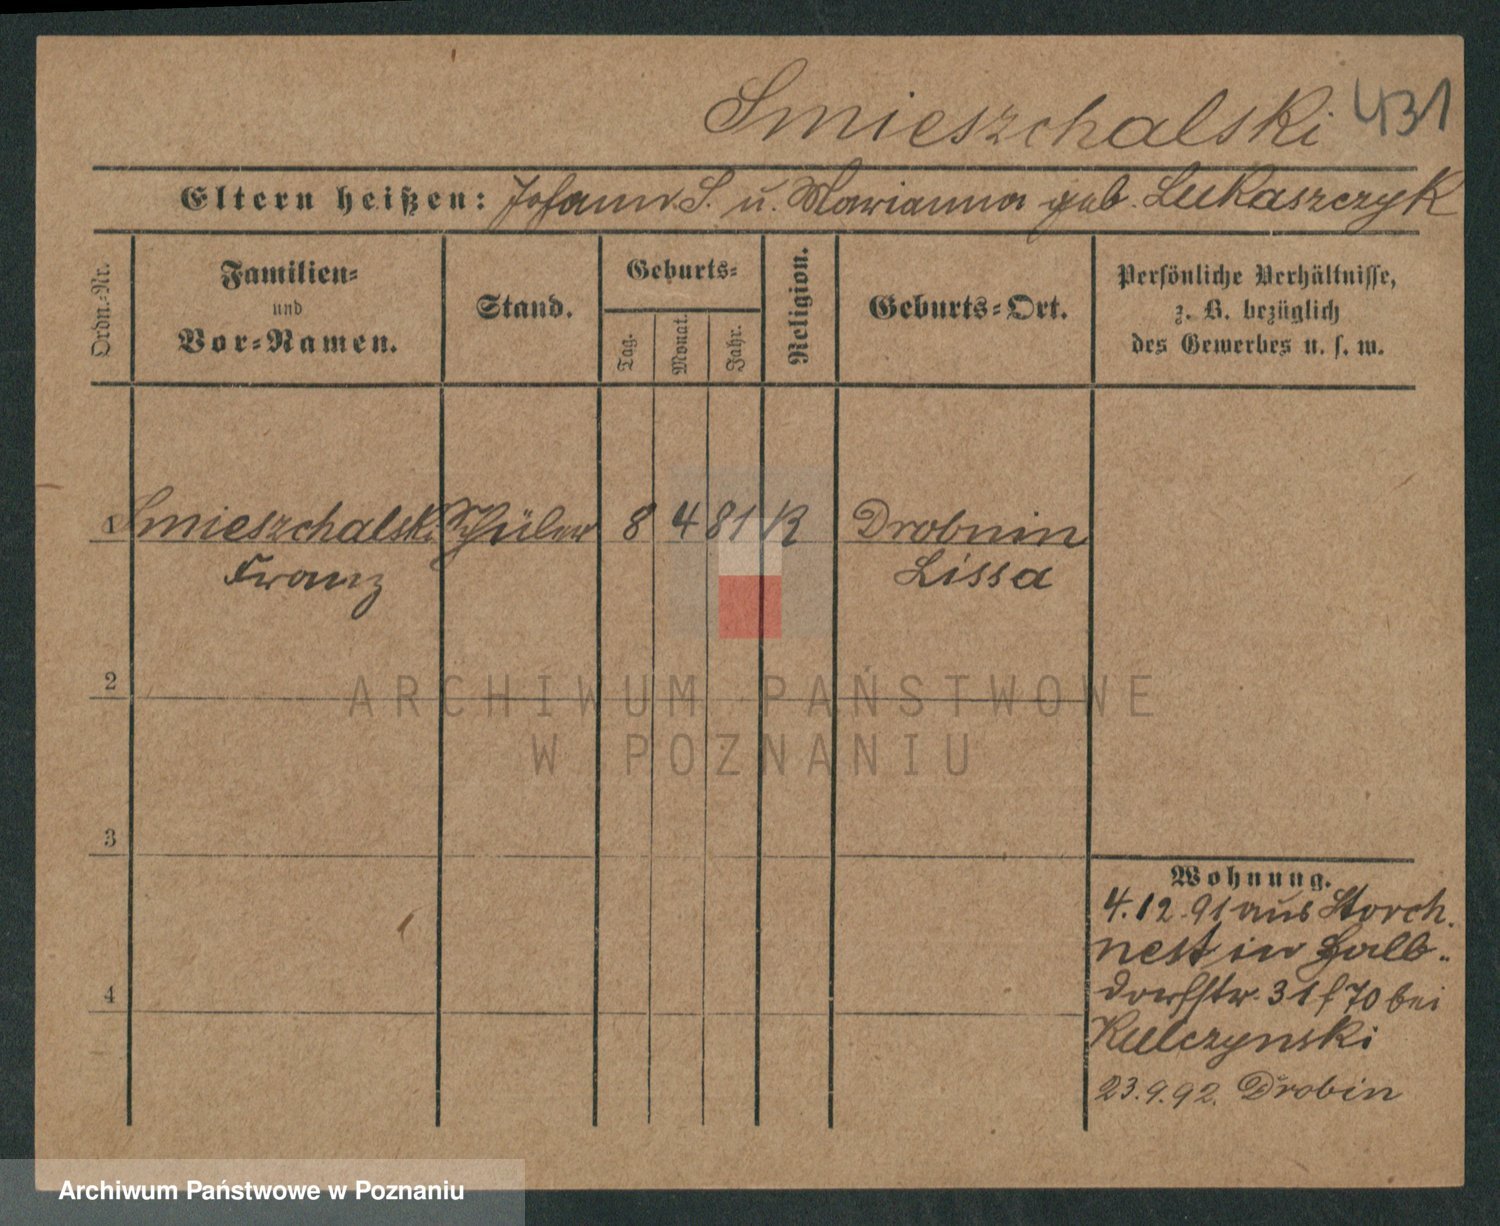 Smieszchalski 431
Eltern heißen: Johann S. u. Marianna geb. Lukaszczyk
Ordn.-Nr.
Familien-
und
Vor-Namen.
Stand.
Geburts-
Tag.
Monat.
Jahr.
Religion.
Geburts-Ort.
Persönliche Verhältnisse,
z. B. bezüglich
des Gewerbes u. s. w.
1 Smieszchalski Schüler 8 4 81 K Drobnin
Franz Lissa
2
3
4
Wohnung.
4.12.91 aus Storch
nest in Halb-
dorfstr. 31 f 70 bei
Kulczynski
23.9.92. Drobin
ARCHIWUM PAŃSTWOWE
W POZNANIU
Archiwum Państwowe w Poznaniu